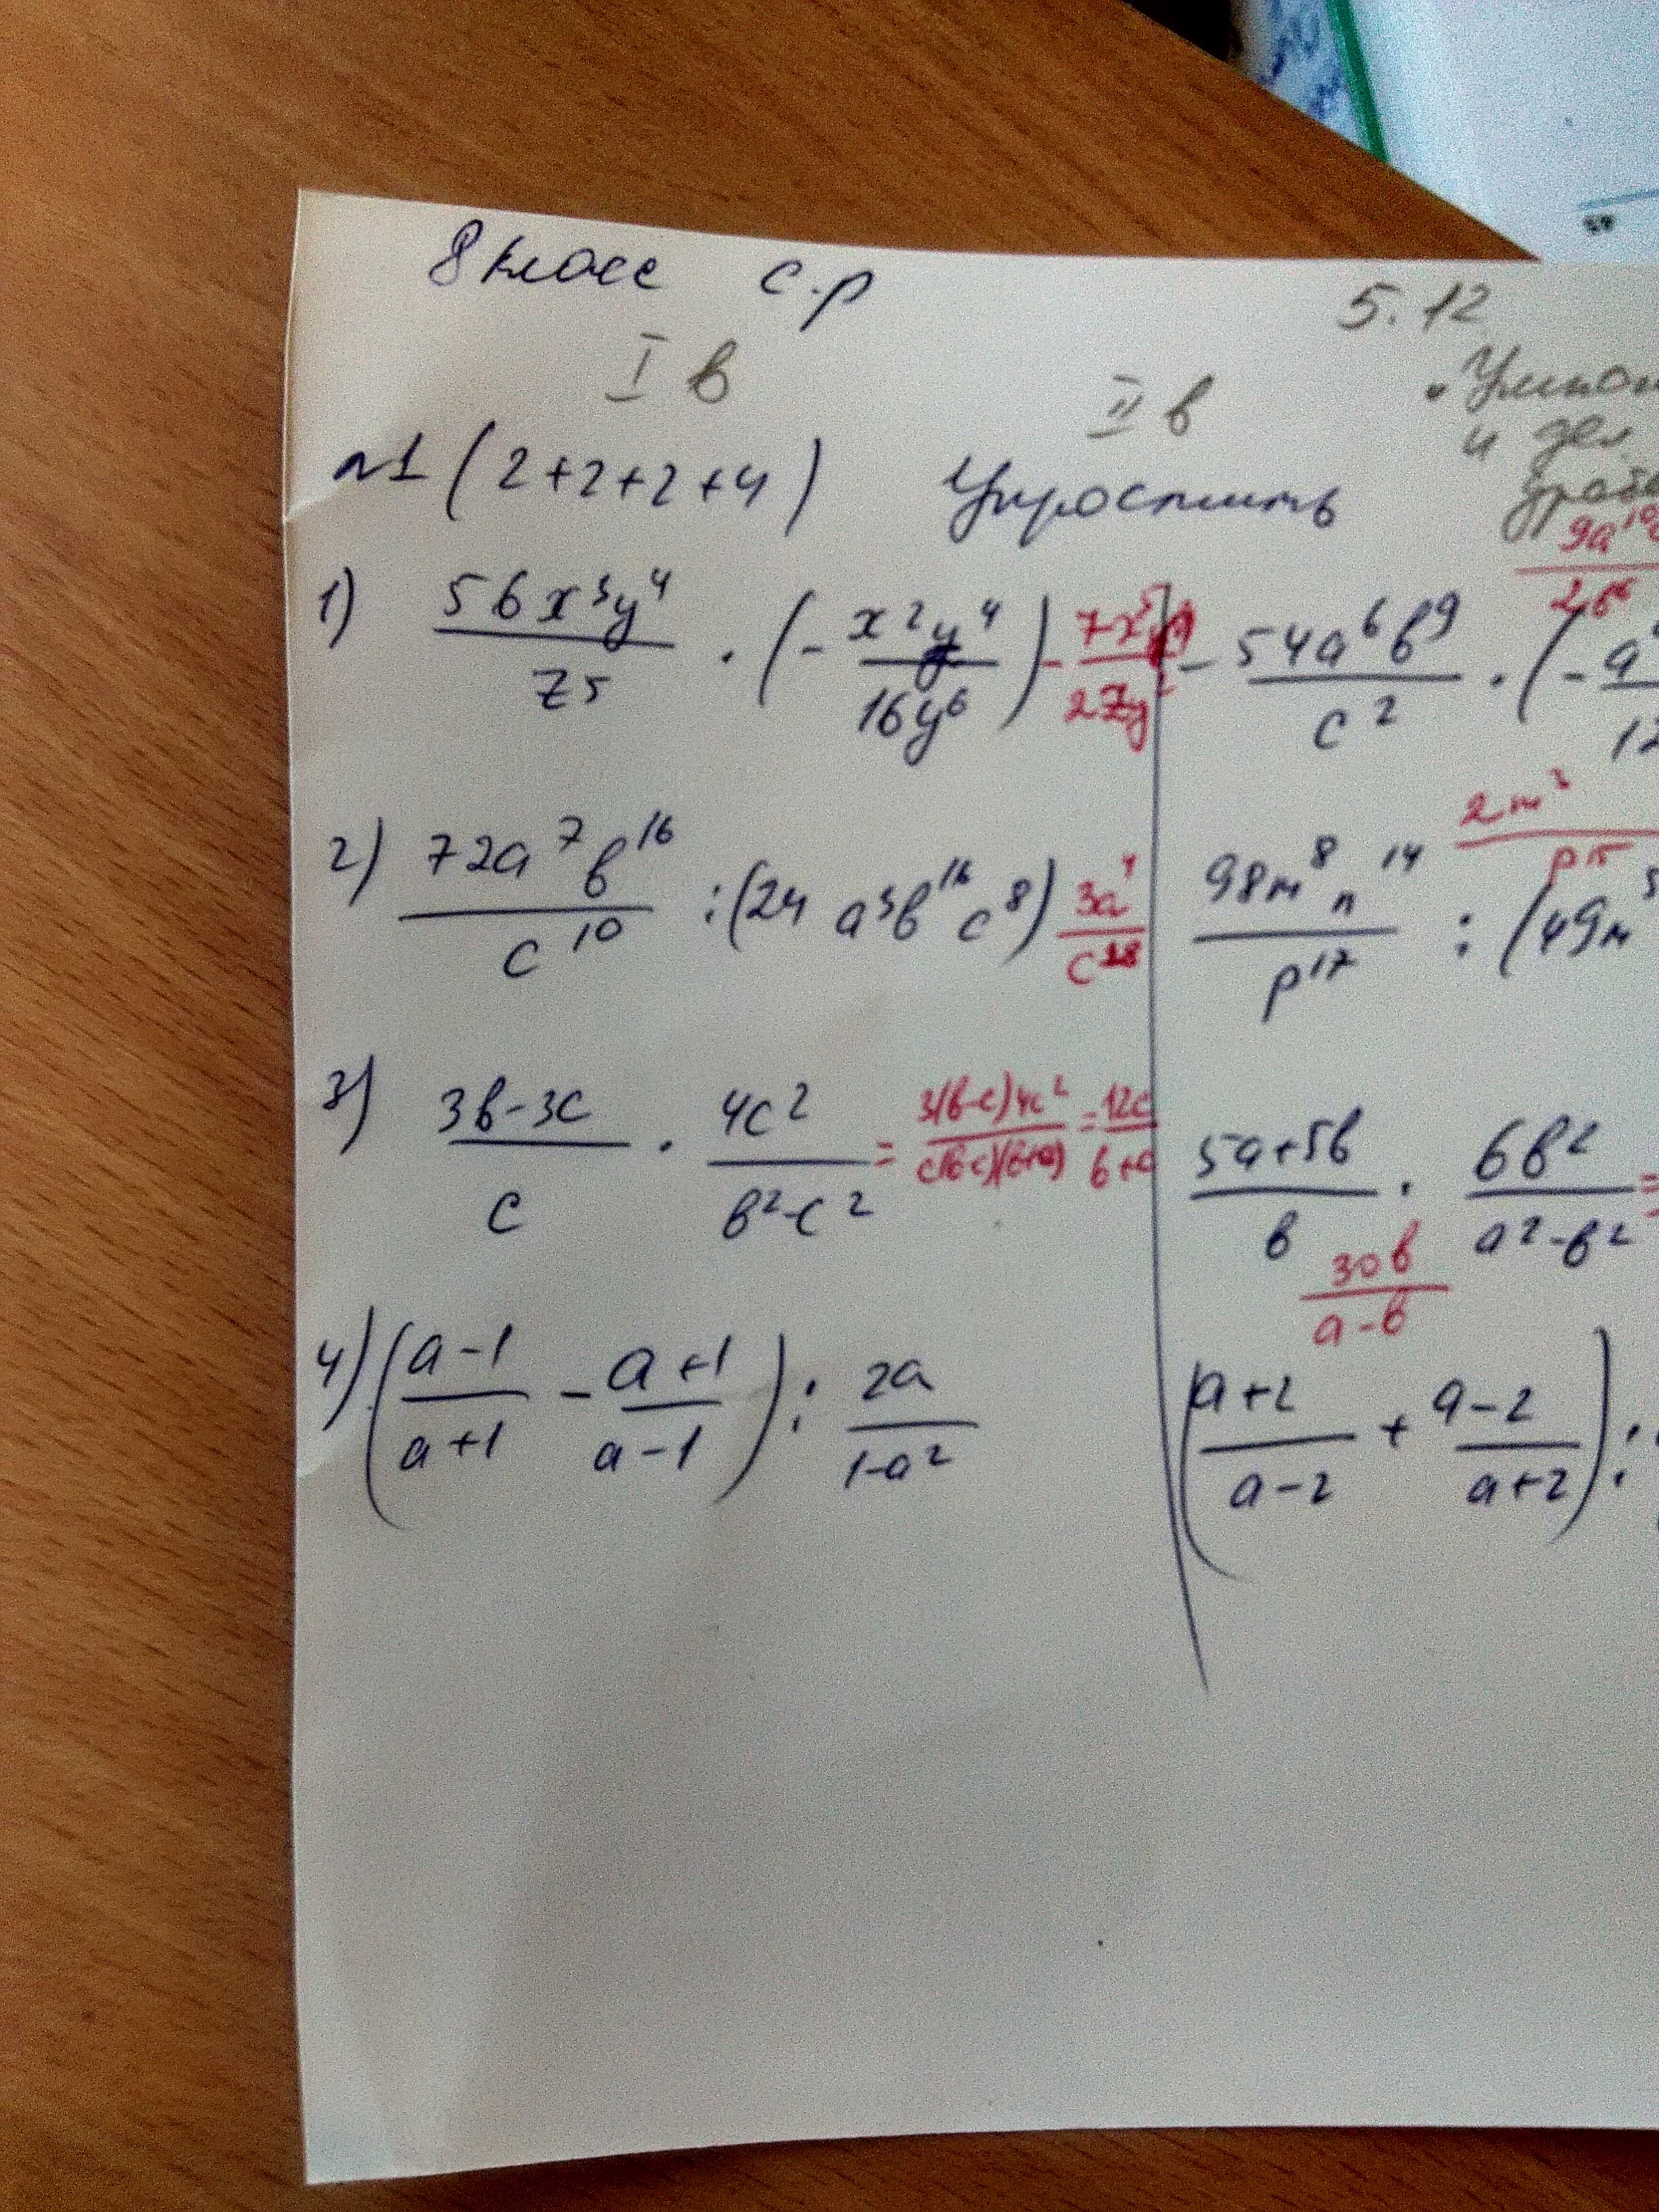 8 класс с.р
5.12
I в
II в
и дел.
№1 (2+2+2+4) Упростить
1) \frac{56x^3y^4}{z^5} · (-\frac{x^2y^4}{16y^6})
-\frac{54a^6b^9}{c^2} · (-
2) \frac{72a^7b^{16}}{c^{10}} : (24 a^3b^{16}c^8) \frac{3a^4}{c^{18}}
\frac{98m^8n^{14}}{p^{17}} : (49m
\frac{2m^3}{p^{15}}
3) \frac{3b-3c}{c} · \frac{4c^2}{b^2-c^2} = \frac{3(b-c)4c^2}{c(b-c)(b+c)} = \frac{12c}{b+c}
\frac{5a+5b}{b} · \frac{6b^2}{a^2-b^2} =
\frac{30b}{a-b}
4) (\frac{a-1}{a+1} - \frac{a+1}{a-1}) : \frac{2a}{1-a^2}
(\frac{a+2}{a-2} + \frac{a-2}{a+2}) :